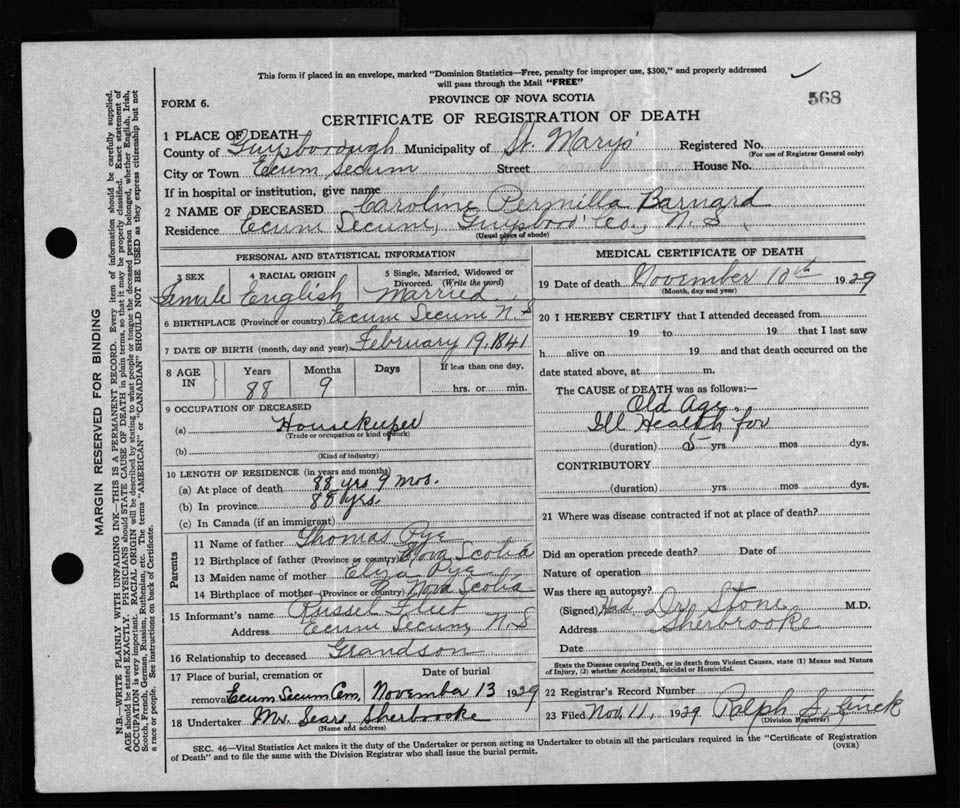 This form if placed in an envelope, marked "Dominion Statistics—Free, penalty for improper use, $300," and properly addressed
will pass through the Mail "FREE"
568
FORM 6.
PROVINCE OF NOVA SCOTIA
CERTIFICATE OF REGISTRATION OF DEATH
1 PLACE OF DEATH
County of Guysborough Municipality of St. Marys' Registered No.
(For use of Registrar General only)
City or Town Ecum Secum Street House No.
If in hospital or institution, give name
2 NAME OF DECEASED Caroline Permilla Barnard
Residence Ecum Secum, Guysboro' Co., N.S
(Usual place of abode)
PERSONAL AND STATISTICAL INFORMATION
3 SEX 4 RACIAL ORIGIN 5 Single, Married, Widowed or
Divorced. (Write the word)
Female English Married
6 BIRTHPLACE (Province or country) Ecum Secum N S
7 DATE OF BIRTH (month, day and year) February 19, 1841
8 AGE IN Years Months Days If less than one day,
88 9 hrs. or min.
9 OCCUPATION OF DECEASED
(a) Housekeeper
(Trade or occupation or kind of work)
(b)
(Kind of industry)
10 LENGTH OF RESIDENCE (in years and months)
(a) At place of death 88 yrs 9 mos.
(b) In province 88 yrs.
(c) In Canada (if an immigrant)
Parents
11 Name of father Thomas Pye
12 Birthplace of father (Province or country) Nova Scotia
13 Maiden name of mother Eliza Pye
14 Birthplace of mother (Province or country) Nova Scotia
15 Informant's name Russel Fleet
Address Ecum Secum, N.S
16 Relationship to deceased Grandson
17 Place of burial, cremation or Date of burial
removal Ecum Secum Cem, November 13 1929
18 Undertaker Mr. Sears, Sherbrooke
(Name and address)
MEDICAL CERTIFICATE OF DEATH
19 Date of death November 10th 1929
(Month, day and year)
20 I HEREBY CERTIFY that I attended deceased from
19 to 19 that I last saw
h alive on 19 and that death occurred on the
date stated above, at m.
The CAUSE of DEATH was as follows:—
Old Age
Ill Health for
(duration) 5 yrs mos dys.
CONTRIBUTORY
(duration) yrs mos dys.
21 Where was disease contracted if not at place of death?
Did an operation precede death? Date of
Nature of operation
Was there an autopsy?
(Signed) Had Dr Stone M.D.
Address Sherbrooke
Date
State the Disease causing Death, or in death from Violent Causes, state (1) Means and Nature
of Injury, (2) whether Accidental, Suicidal or Homicidal.
22 Registrar's Record Number
23 Filed Nov, 11, 1929 Ralph S.
(Division Registrar)
SEC. 46—Vital Statistics Act makes it the duty of the Undertaker or person acting as Undertaker to obtain all the particulars required in the "Certificate of Registration
of Death" and to file the same with the Division Registrar who shall issue the burial permit.
(OVER)
MARGIN RESERVED FOR BINDING
N.B.—WRITE PLAINLY WITH UNFADING INK—THIS IS A PERMANENT RECORD. Every item of information should be carefully supplied.
AGE should be stated EXACTLY. PHYSICIANS should STATE CAUSE OF DEATH in plain terms, so that it may be properly classified. Exact statement of
OCCUPATION is very important. RACIAL ORIGIN will be described by stating to what people or tongue the deceased person belonged, whether English, Irish,
Scotch, French, German, Russian, Ruthenian, etc. The terms "AMERICAN" or "CANADIAN" SHOULD NOT BE USED as they express citizenship but not
a race or people. See instructions on back of Certificate.